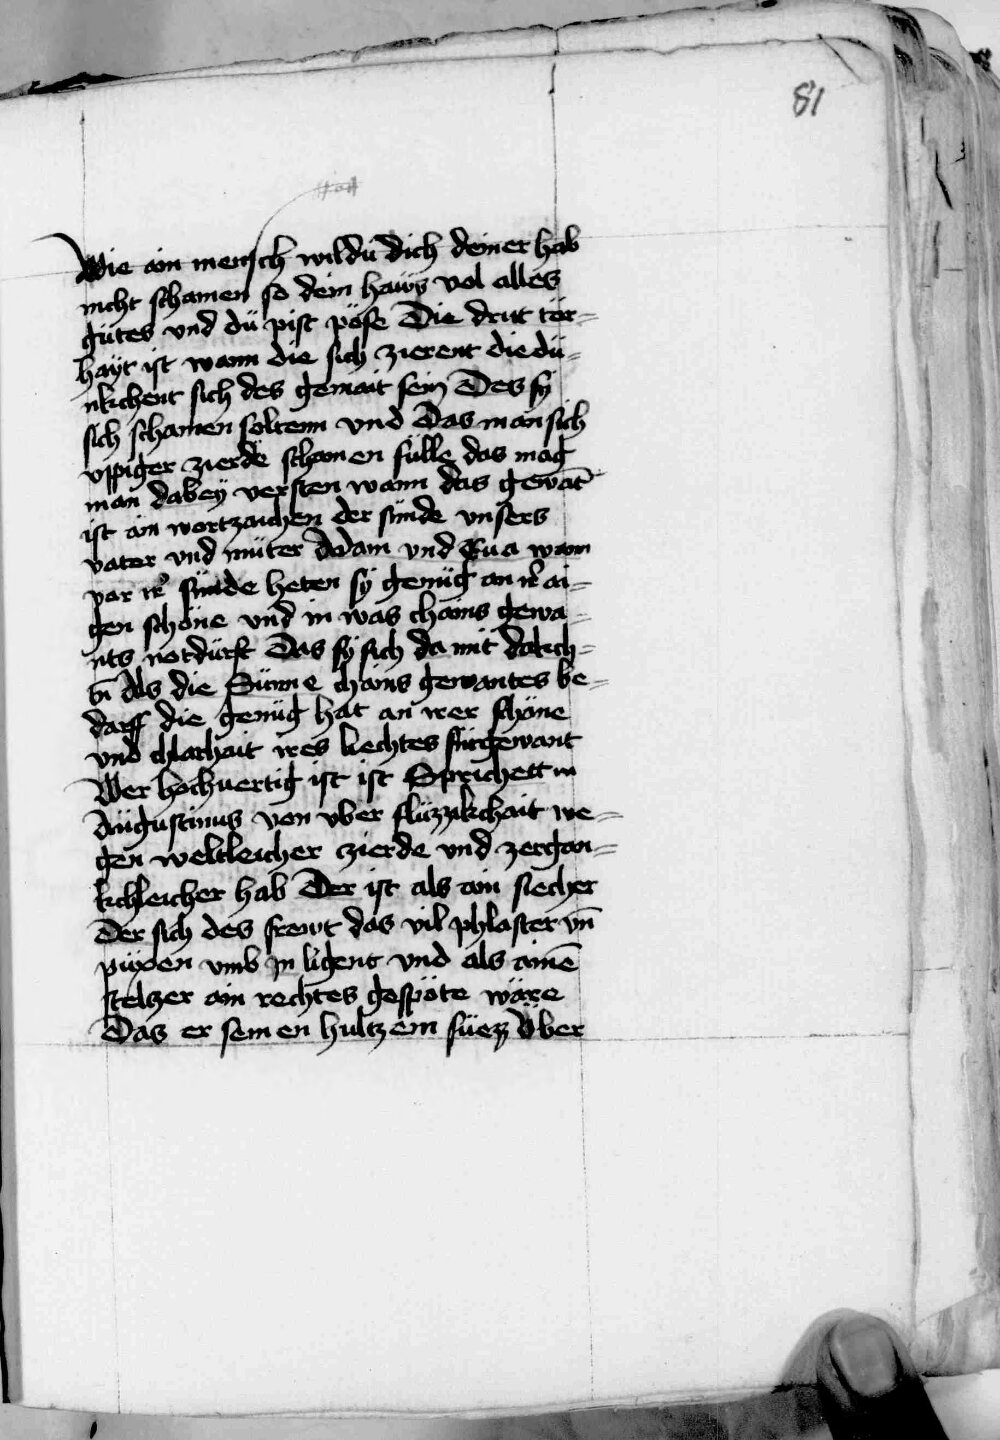 81
Wie ain mensch wildu dich deiner hab
nicht schamen so dein haüs vol alles
gütes vnd dü pist pöse Die drit tör=
hayt ist wann die sich zierent die dü=
nkchent sich des gemait sein Des sy
sich schamen soltenn vnd Das man sich
vppiger zierde schamen sülle das mag
man dabey versten wann das gewāt
ist ain wortzaichen der sünde vnsers
vater vnd müter Adam vnd Eua wann
vor ir sünde heten sy genüg an ir ai=
gen schöne vnd in was chains gewa=
nts notdürft Das sy sich da mit dakch=
tn Als die Sünne chains gewantes be=
darff die genüg hat an irer schöne
vnd chlarhait ires liechtes fürgewant
Wer hochuertig ist ist Sprichett in
Augustinus von vber flüzzikchait we=
gen weltleicher zierde vnd zergan=
kchleicher hab Der ist als ain siecher
Der sich des frewt das vil phlaster vn̄
püxen vmb jn ligent vnd als ainē
stelzer ain rechtes gespöte wäre
Das er seinen hultzem füez Vber